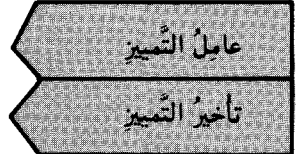 عامِلُ التَّمييزِ
تأخيرُ التَّمييزِ